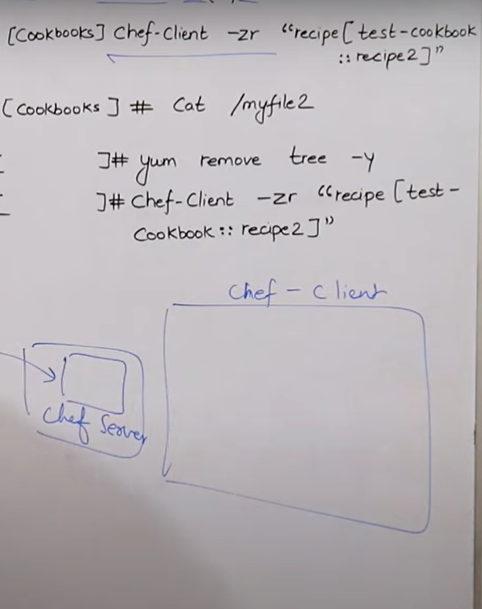 [Cookbooks] Chef-Client -zr “recipe[test-cookbook
:: recipe2]”
[Cookbooks] # Cat /myfile2
]# yum remove tree -y
]# Chef-Client -zr “recipe [test-
Cookbook:: recipe2]”
Chef - Client
Chef Server